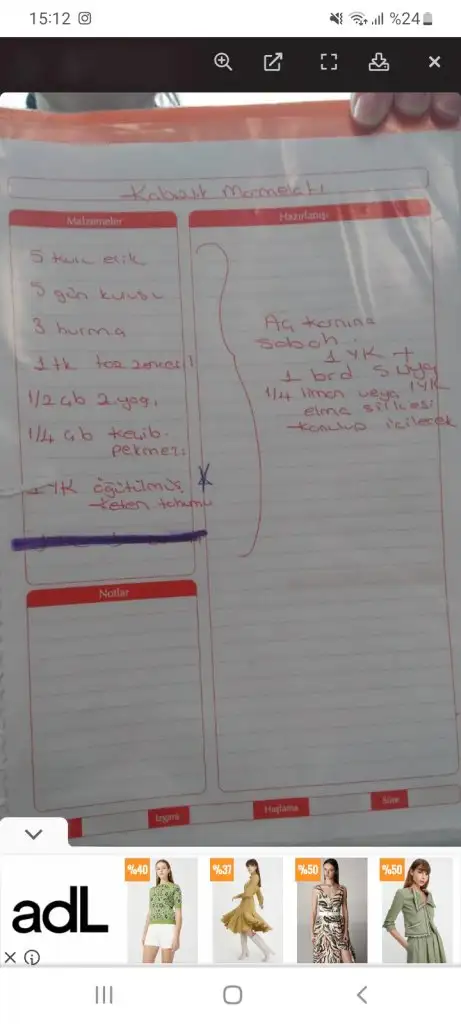 15:12
%24
Kabızlık Marmelatı
Malzemeler
5 kuru erik
5 gün kurusu
3 hurma
1 tk toz zencefil
1/2 çb z.yağı
1/4 çb keçib.
pekmezi
1 YK öğütülmüş
keten tohumu
Hazırlanışı
Aç karnına
sabah
1 YK +
1 brd S
1/4 limon veya 1YK
elma sirkesi
konulup içilecek
Notlar
Izgara
Haşlama
adL
%40
%37
%50
%50